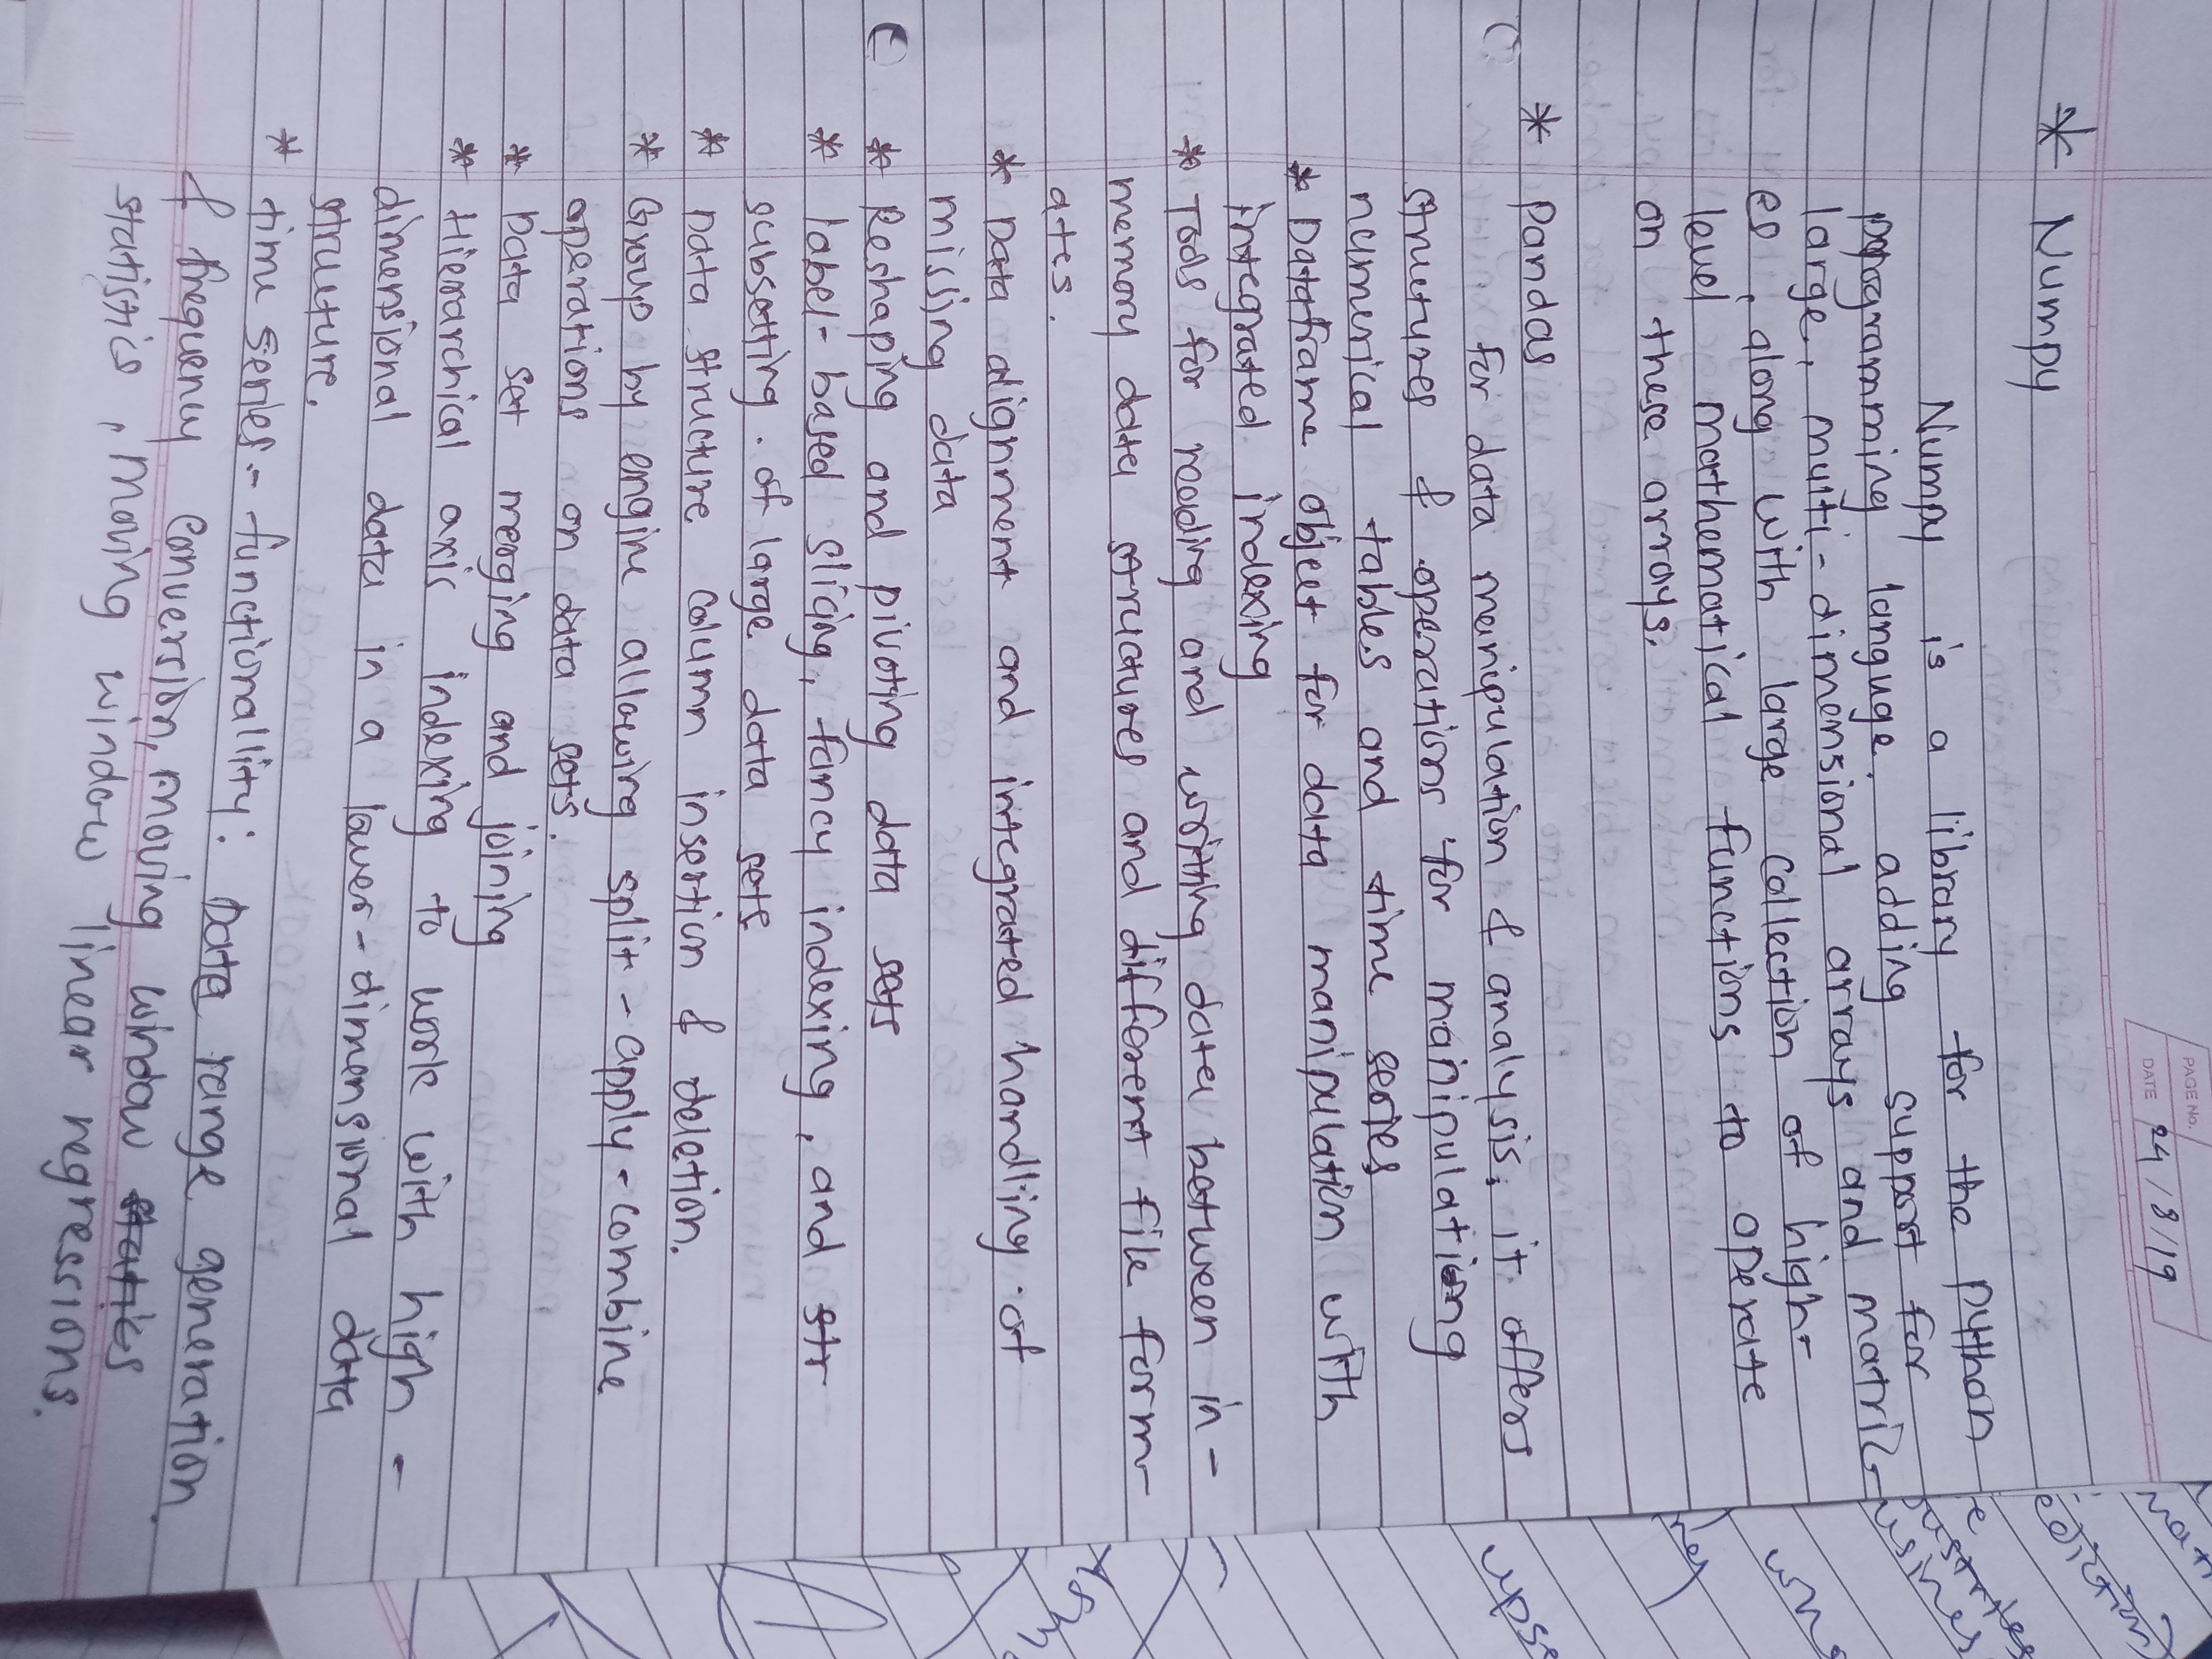 PAGE No.
DATE 24/8/19
* Numpy
Numpy is a library for the python
programming languge, adding support for
large, multi-dimensional arrays and matric-
es, along with large collection of high-
level mathematical functions to operate
on these arrays.
* Pandas
for data manipulation & analysis, it offers
structures & operations for manipulating
numerical tables and time series
* Dataframe object for data manipulation with
integrated indexing
* Tools for reading and writing data between in-
memory data structures and different file form-
ates.
* Data alignment and integrated handling of
missing data
* Reshaping and pivoting data sets
* label-based slicing, fancy indexing, and str
subsetting of large data sets
* Data structure column insertion & deletion.
* Group by engine allowing split-apply-combine
operations on data sets.
* Data set merging and joining
* Hierarchical axis indexing to work with high-
dimensional data in a lower-dimensional data
structure.
* time series-functionallity: Data range generation
& frequency conversion, moving window statics
statistics, moving window linear regressions.